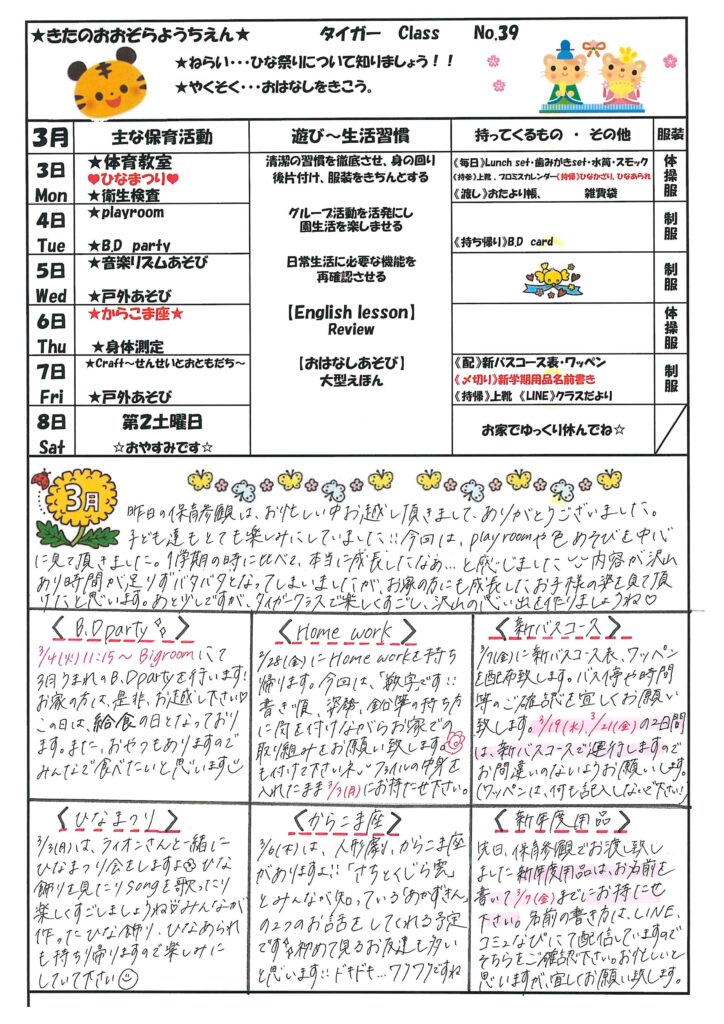 ★きたのおおぞらようちえん★ タイガー Class No.39
★ねらい・・・ひな祭りについて知りましょう！！
★やくそく・・・おはなしをきこう。
3月 主な保育活動 遊び～生活習慣 持ってくるもの ・ その他 服装
3日 Mon
★体育教室
♥ひなまつり♥
★衛生検査
清潔の習慣を徹底させ、身の回り
後片付け、服装をきちんとする
《毎日》Lunch set・歯みがきset・水筒・スモック
《持参》上靴、プロミスカレンダー《持帰》ひなかざり、ひなあられ
《渡し》おたより帳、 雑費袋
体操服
4日 Tue
★playroom
★B.D party
グループ活動を活発にし
園生活を楽しませる
《持ち帰り》B.D card
制服
5日 Wed
★音楽リズムあそび
★戸外あそび
日常生活に必要な機能を
再確認させる
制服
6日 Thu
★からこま座★
★身体測定
【English lesson】
Review
体操服
7日 Fri
★Craft～せんせいとおともだち～
★戸外あそび
【おはなしあそび】
大型えほん
《配》新バスコース表・ワッペン
《〆切り》新学期用品名前書き
《持帰》上靴 《LINE》クラスだより
制服
8日 Sat
第2土曜日
☆おやすみです☆
お家でゆっくり休んでね☆
3月
昨日の保育参観は、お忙しい中お越し頂きまして、ありがとうございました。
子ども達もとても楽しみにしていました!!今回は、playroomや色あそびを中心
に見て頂きました。1学期の時に比べて、本当に成長したなぁ…と感じました 内容が沢山
あり時間が足りずバタバタとなってしまいましたが、お家の方にも成長したお子様の姿を見て頂
けたと思います。あと少しですが、タイガークラスで楽しくすごし、沢山の思い出を作りましょうね♡
〈B.D party〉
3/4(火)11:15～Bigroomにて
3月うまれのB.D partyを行います!
お家の方は、是非、お越し下さい♡
この日は、給食の日となっており
ます。また、おやつもありますので
みんなで食べたいと思います
〈Home work〉
2/28(金)にHome workを持ち
帰ります。今回は、「数字」です!!
書き順、姿勢、鉛筆の持ち方
に気を付けながらお家での
取り組みをお願い致します。
も付けて下さいネ ファイルの中身を
入れたまま3/3(月)にお持たせ下さい。
〈新バスコース〉
3/7(金)に新バスコース表、ワッペン
を配布致します。バス停や時間
等のご確認を宜しくお願い
致します。3/19(水)、3/21(金)の2日間
は、新バスコースで運行しますので
お間違いのないようお願いします。
(ワッペンは、何も記入しないで下さい!)
〈ひなまつり〉
3/3(月)は、ライオンさんと一緒に
ひなまつり会をしますよ ひな
飾りを見たりsongを歌ったり
楽しくすごしましょうね♡みんなが
作ったひな飾り、ひなあられ
も持ち帰りますので楽しみに
していて下さい
〈からこま座〉
3/6(木)は、人形劇、からこま座
がありますよ!!「さちとくじら雲」
とみんなが知っている「あかずきん」
の2つのお話をしてくれる予定
です 初めて見るお友達も多い
と思います!!ドキドキ…ワクワクですね
〈新年度用品〉
先日、保育参観でお渡し致し
ました新年度用品は、お名前を
書いて3/7(金)までにお持たせ
下さい。名前の書き方は、LINE、
コミュなびにて配信していますので
そちらをご確認下さい。お忙しいと
思いますが、宜しくお願い致します。